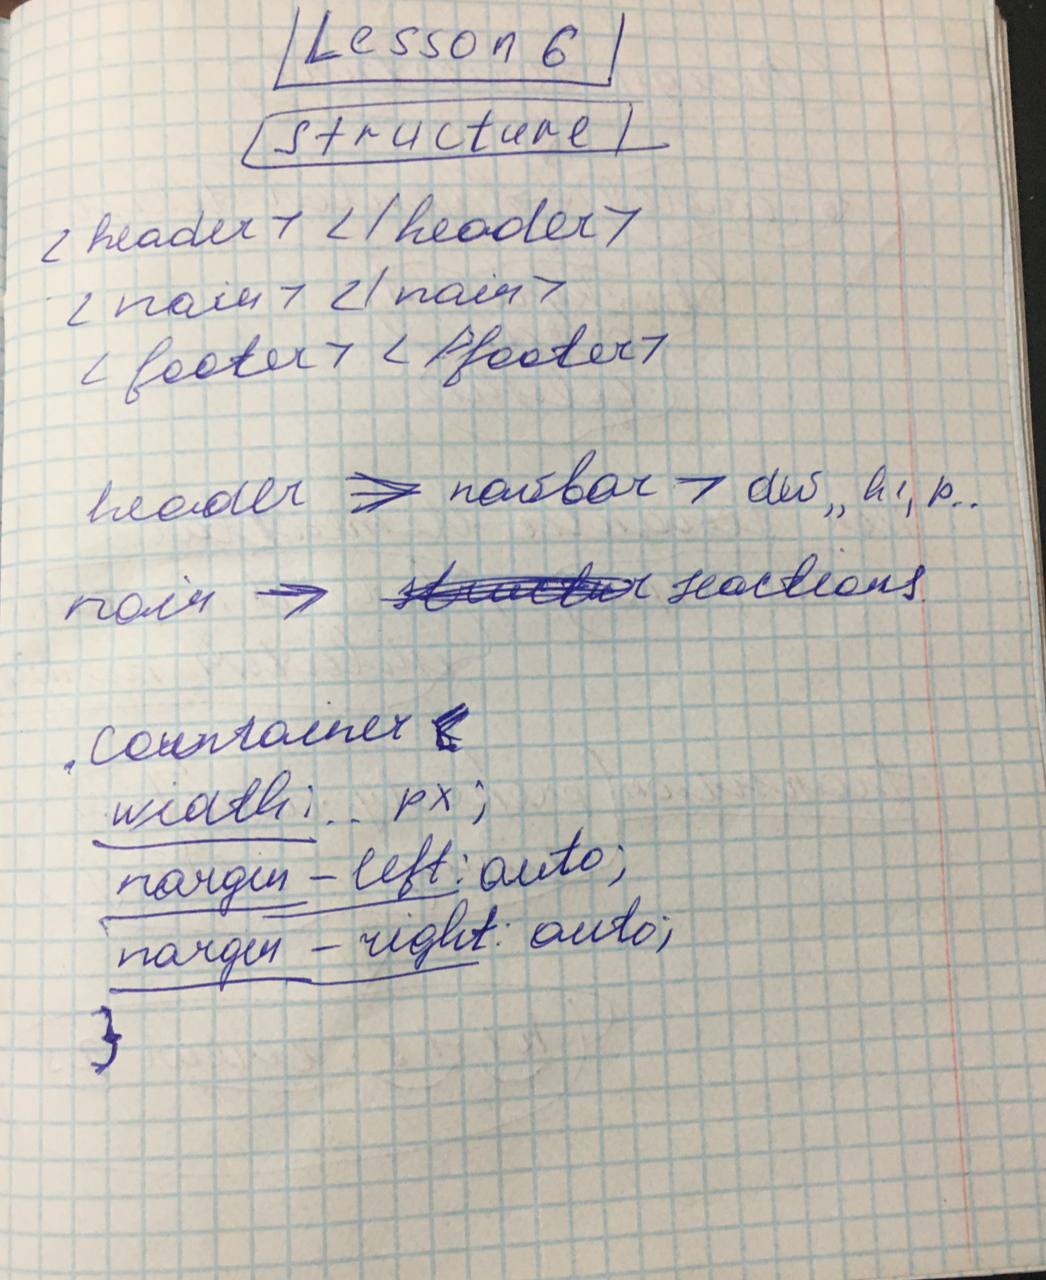 Lesson 6
structure
<header> </header>
<main> </main>
<footer> </footer>
header => navbar > div,, h1, p..
main -> seactions.
.countainer {
width: .. px;
margin - left: auto;
margin - right: auto;
}